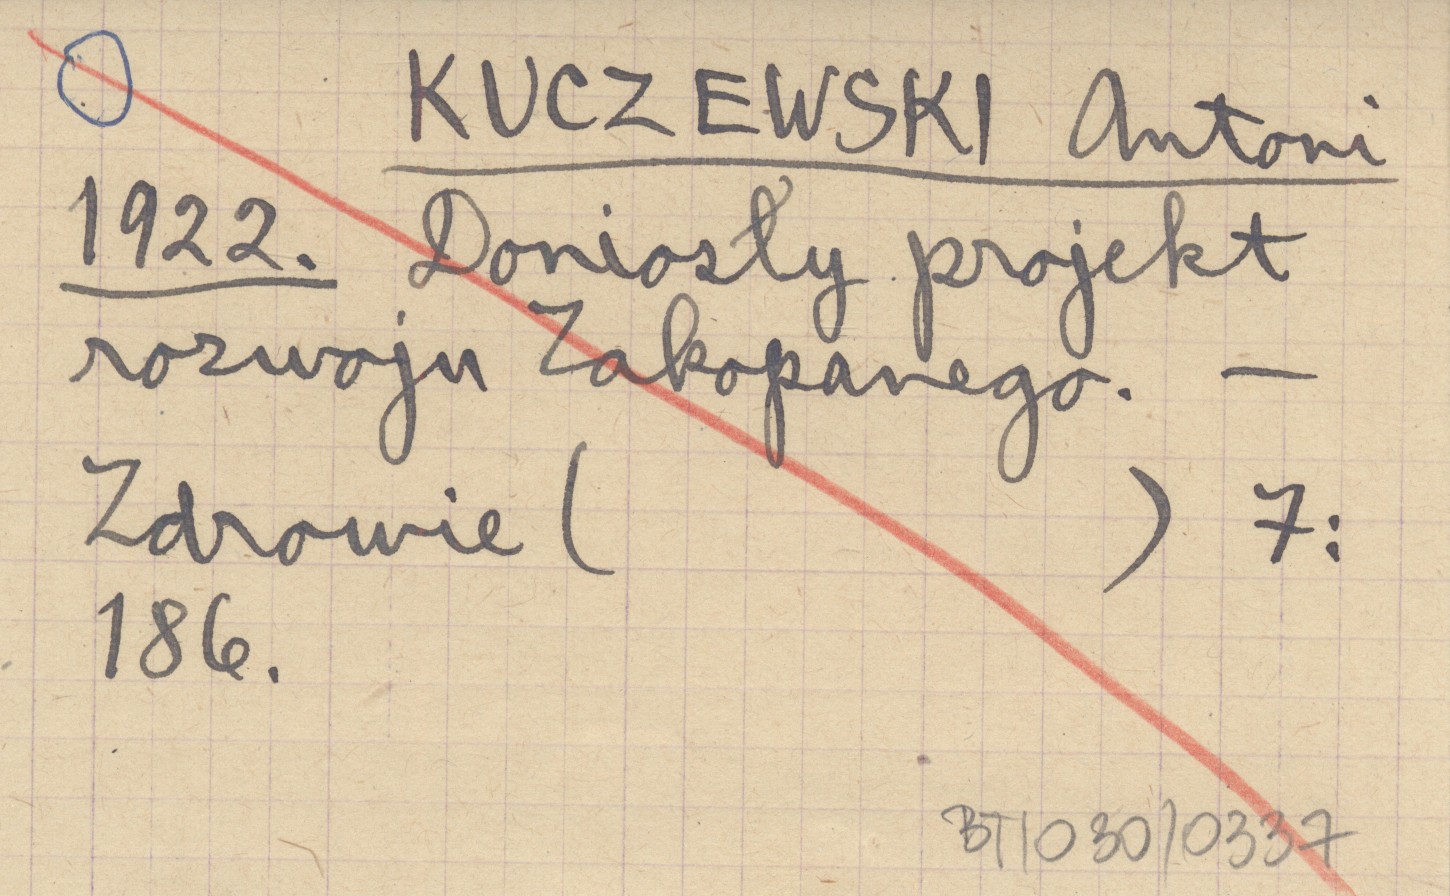 KUCZEWSKI Antoni
1922. Doniosły projekt
rozwoju Zakopanego. —
Zdrowie ( ) 7:
186.
BT/030/0337